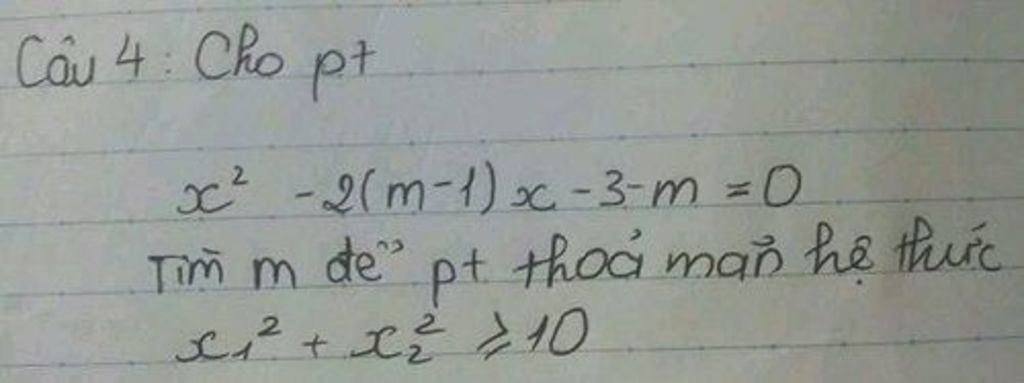 Câu 4: Cho pt
x² - 2(m-1)x - 3 - m = 0
Tìm m để pt thoả mãn hệ thức
x₁² + x₂² ⩾ 10